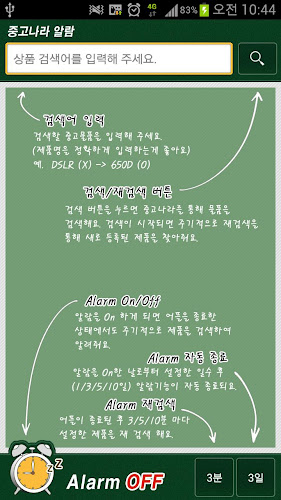 4G 83% 오전 10:44
중고나라 알람
상품 검색어를 입력해 주세요.
검색어 입력
검색할 중고물품을 입력해 주세요.
(제품명은 정확하게 입력하는게 좋아요)
예. DSLR (X) -> 650D (O)
검색/재검색 버튼
검색 버튼을 누르면 중고나라를 통해 물품을
검색해요. 검색이 시작되면 주기적으로 재검색을
통해 새로 등록된 제품을 찾아줘요.
Alarm On/Off
알람을 On 하게 되면 어플을 종료한
상태에서도 주기적으로 제품을 검색하여
알려줘요.
Alarm 자동 종료
알람을 On한 날로부터 설정한 일수 후
(1/3/5/10일) 알람기능이 자동 종료되요.
Alarm 재검색
어플이 종료된 후 3/5/10분 마다
설정한 제품을 재 검색 해요.
z z
Alarm OFF
3분
3일